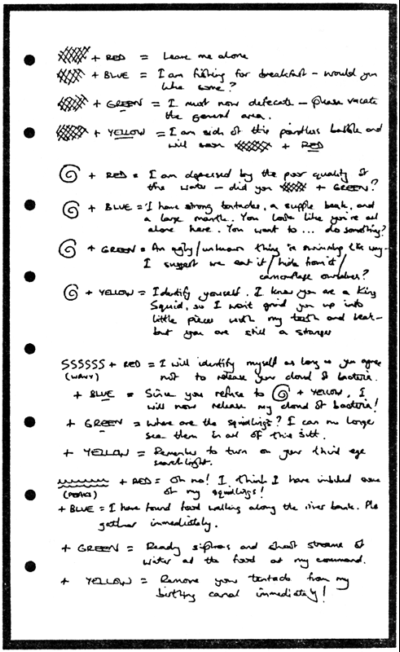 + RED = Leave me alone
+ BLUE = I am fishing for breakfast – would you
like some?
+ GREEN = I must now defecate – please vacate
the general area.
+ YELLOW = I am sick of this pointless babble and
will soon + RED
+ RED = I am depressed by the poor quality of
this water – did you + GREEN?
+ BLUE = I have strong tentacles, a supple beak, and
a large mantle. You look like you're all
alone here. You want to ... do something?
+ GREEN = An ugly/unknown thing is swimming this way –
I suggest we eat it/hide from it/
camouflage ourselves?
+ YELLOW = Identify yourself. I know you are a King
Squid, so I won't grind you up into
little pieces with my teeth and beak –
but you are still a stranger
SSSSSS + RED = I will identify myself as long as you agree
(WAVY) not to release your cloud of bacteria.
+ BLUE = Since you refuse to + YELLOW, I
will now release my cloud of bacteria!
+ GREEN = Where are the squidlings? I can no longer
see them in all of this silt.
+ YELLOW = Remember to turn on your third eye
searchlight.
+ RED = Oh no! I think I have inhaled some
of my squidlings!
+ BLUE = I have found food walking along the river bank. Pls
gather immediately.
+ GREEN = Ready siphons and shoot streams of
water at the food at my command.
+ YELLOW = Remove your tentacle from my
birthing canal immediately!